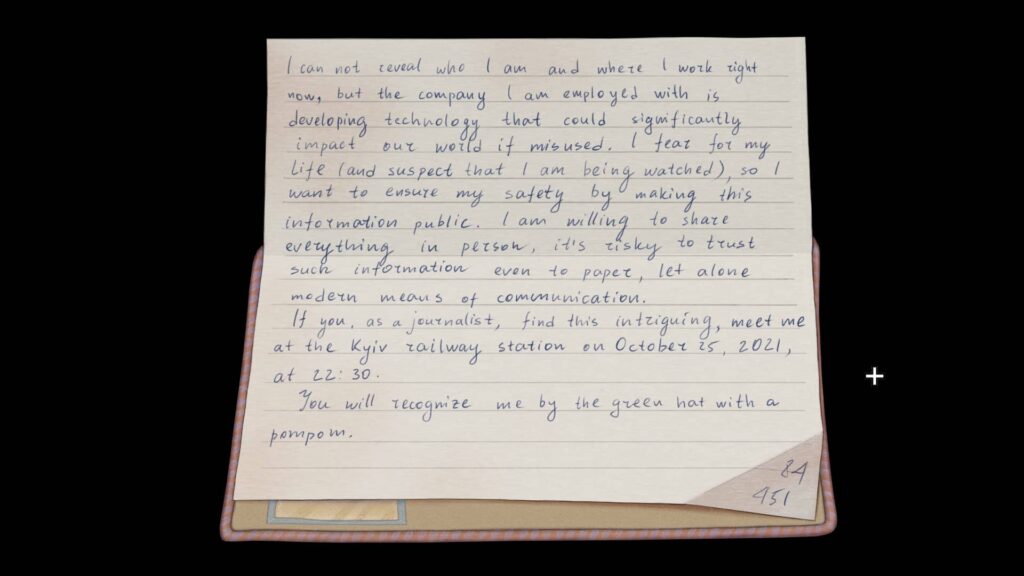 I can not reveal who I am and where I work right
now, but the company I am employed with is
developing technology that could significantly
impact our world if misused. I fear for my
life (and suspect that I am being watched), so I
want to ensure my safety by making this
information public. I am willing to share
everything in person, it's risky to trust
such information even to paper, let alone
modern means of communication.
If you, as a journalist, find this intriguing, meet me
at the Kyiv railway station on October 25, 2021,
at 22:30.
You will recognize me by the green hat with a
pompom.
84
451